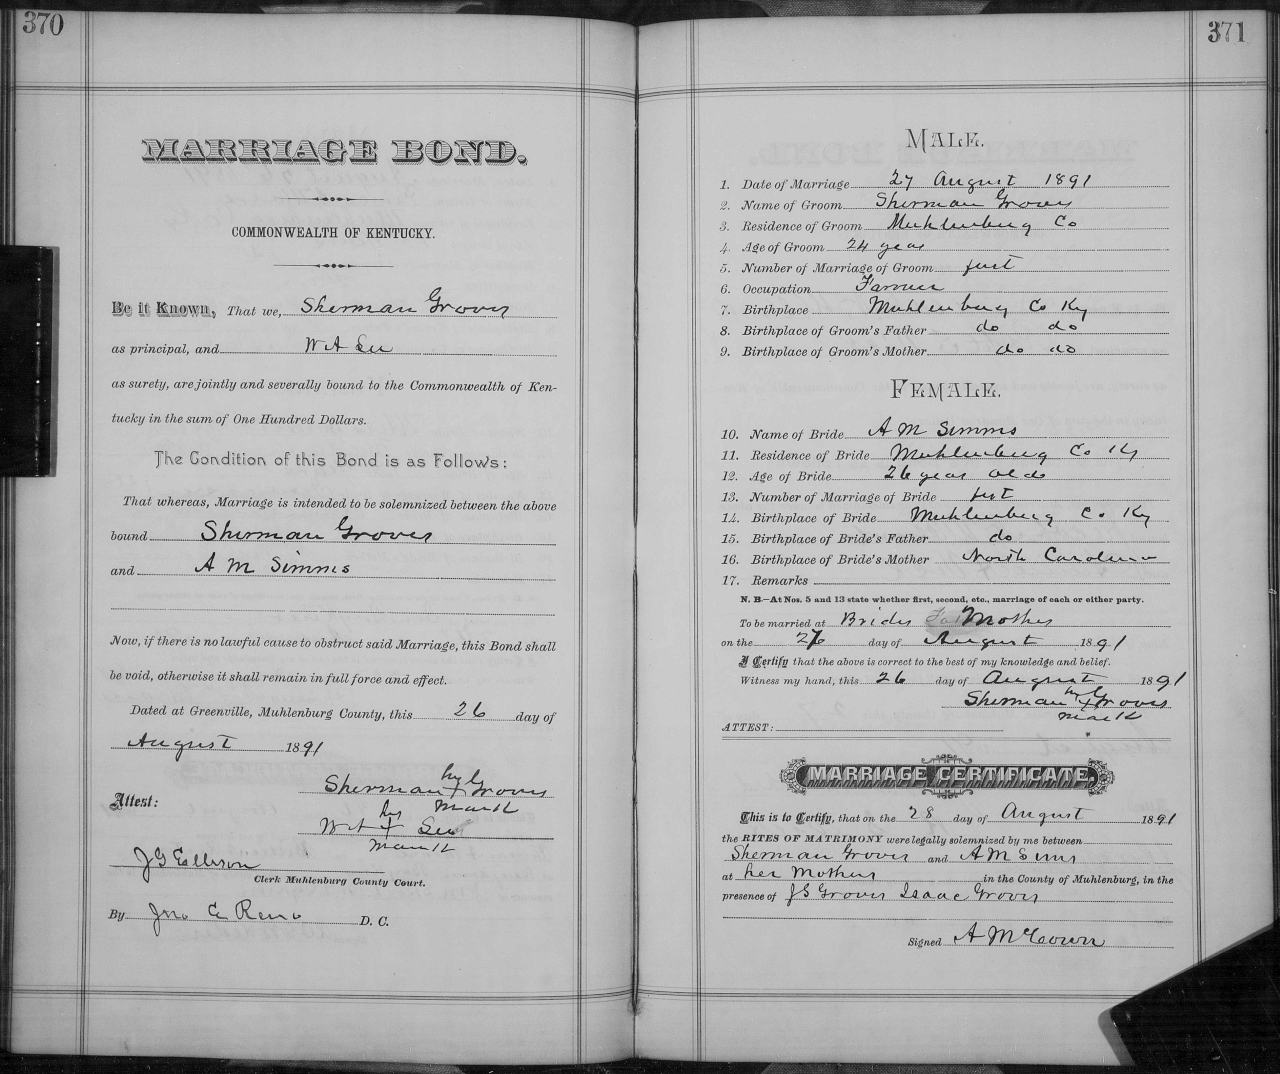 370
MARRIAGE BOND.
COMMONWEALTH OF KENTUCKY.
Be it Known, That we, Sherman Groves
as principal, and W A
as surety, are jointly and severally bound to the Commonwealth of Ken-
tucky in the sum of One Hundred Dollars.
The Condition of this Bond is as Follows:
That whereas, Marriage is intended to be solemnized between the above
bound Sherman Groves
and A M Simms
Now, if there is no lawful cause to obstruct said Marriage, this Bond shall
be void, otherwise it shall remain in full force and effect.
Dated at Greenville, Muhlenburg County, this 26 day of
August 1891
Attest:
Sherman his x mark Groves
W A his x mark
J G Ellison
Clerk Muhlenburg County Court.
By Jno E Reno D. C.
371
MALE.
1. Date of Marriage 27 August 1891
2. Name of Groom Sherman Groves
3. Residence of Groom Muhlenburg Co
4. Age of Groom 24 years
5. Number of Marriage of Groom first
6. Occupation Farmer
7. Birthplace Muhlenburg Co Ky
8. Birthplace of Groom's Father do do
9. Birthplace of Groom's Mother do do
FEMALE.
10. Name of Bride A M Simms
11. Residence of Bride Muhlenburg Co Ky
12. Age of Bride 26 years old
13. Number of Marriage of Bride first
14. Birthplace of Bride Muhlenburg Co Ky
15. Birthplace of Bride's Father do
16. Birthplace of Bride's Mother North Carolina
17. Remarks
N. B.—At Nos. 5 and 13 state whether first, second, etc., marriage of each or either party.
To be married at Brides Mothers
on the 27 day of August 1891
I Certify that the above is correct to the best of my knowledge and belief.
Witness my hand, this 26 day of August 1891
Sherman his x mark Groves
ATTEST:
MARRIAGE CERTIFICATE.
This is to Certify, that on the 28 day of August 1891
the RITES OF MATRIMONY were legally solemnized by me between
Sherman Groves and A M Sims
at her Mothers in the County of Muhlenburg, in the
presence of J S Groves Isaac Groves
Signed A McCown